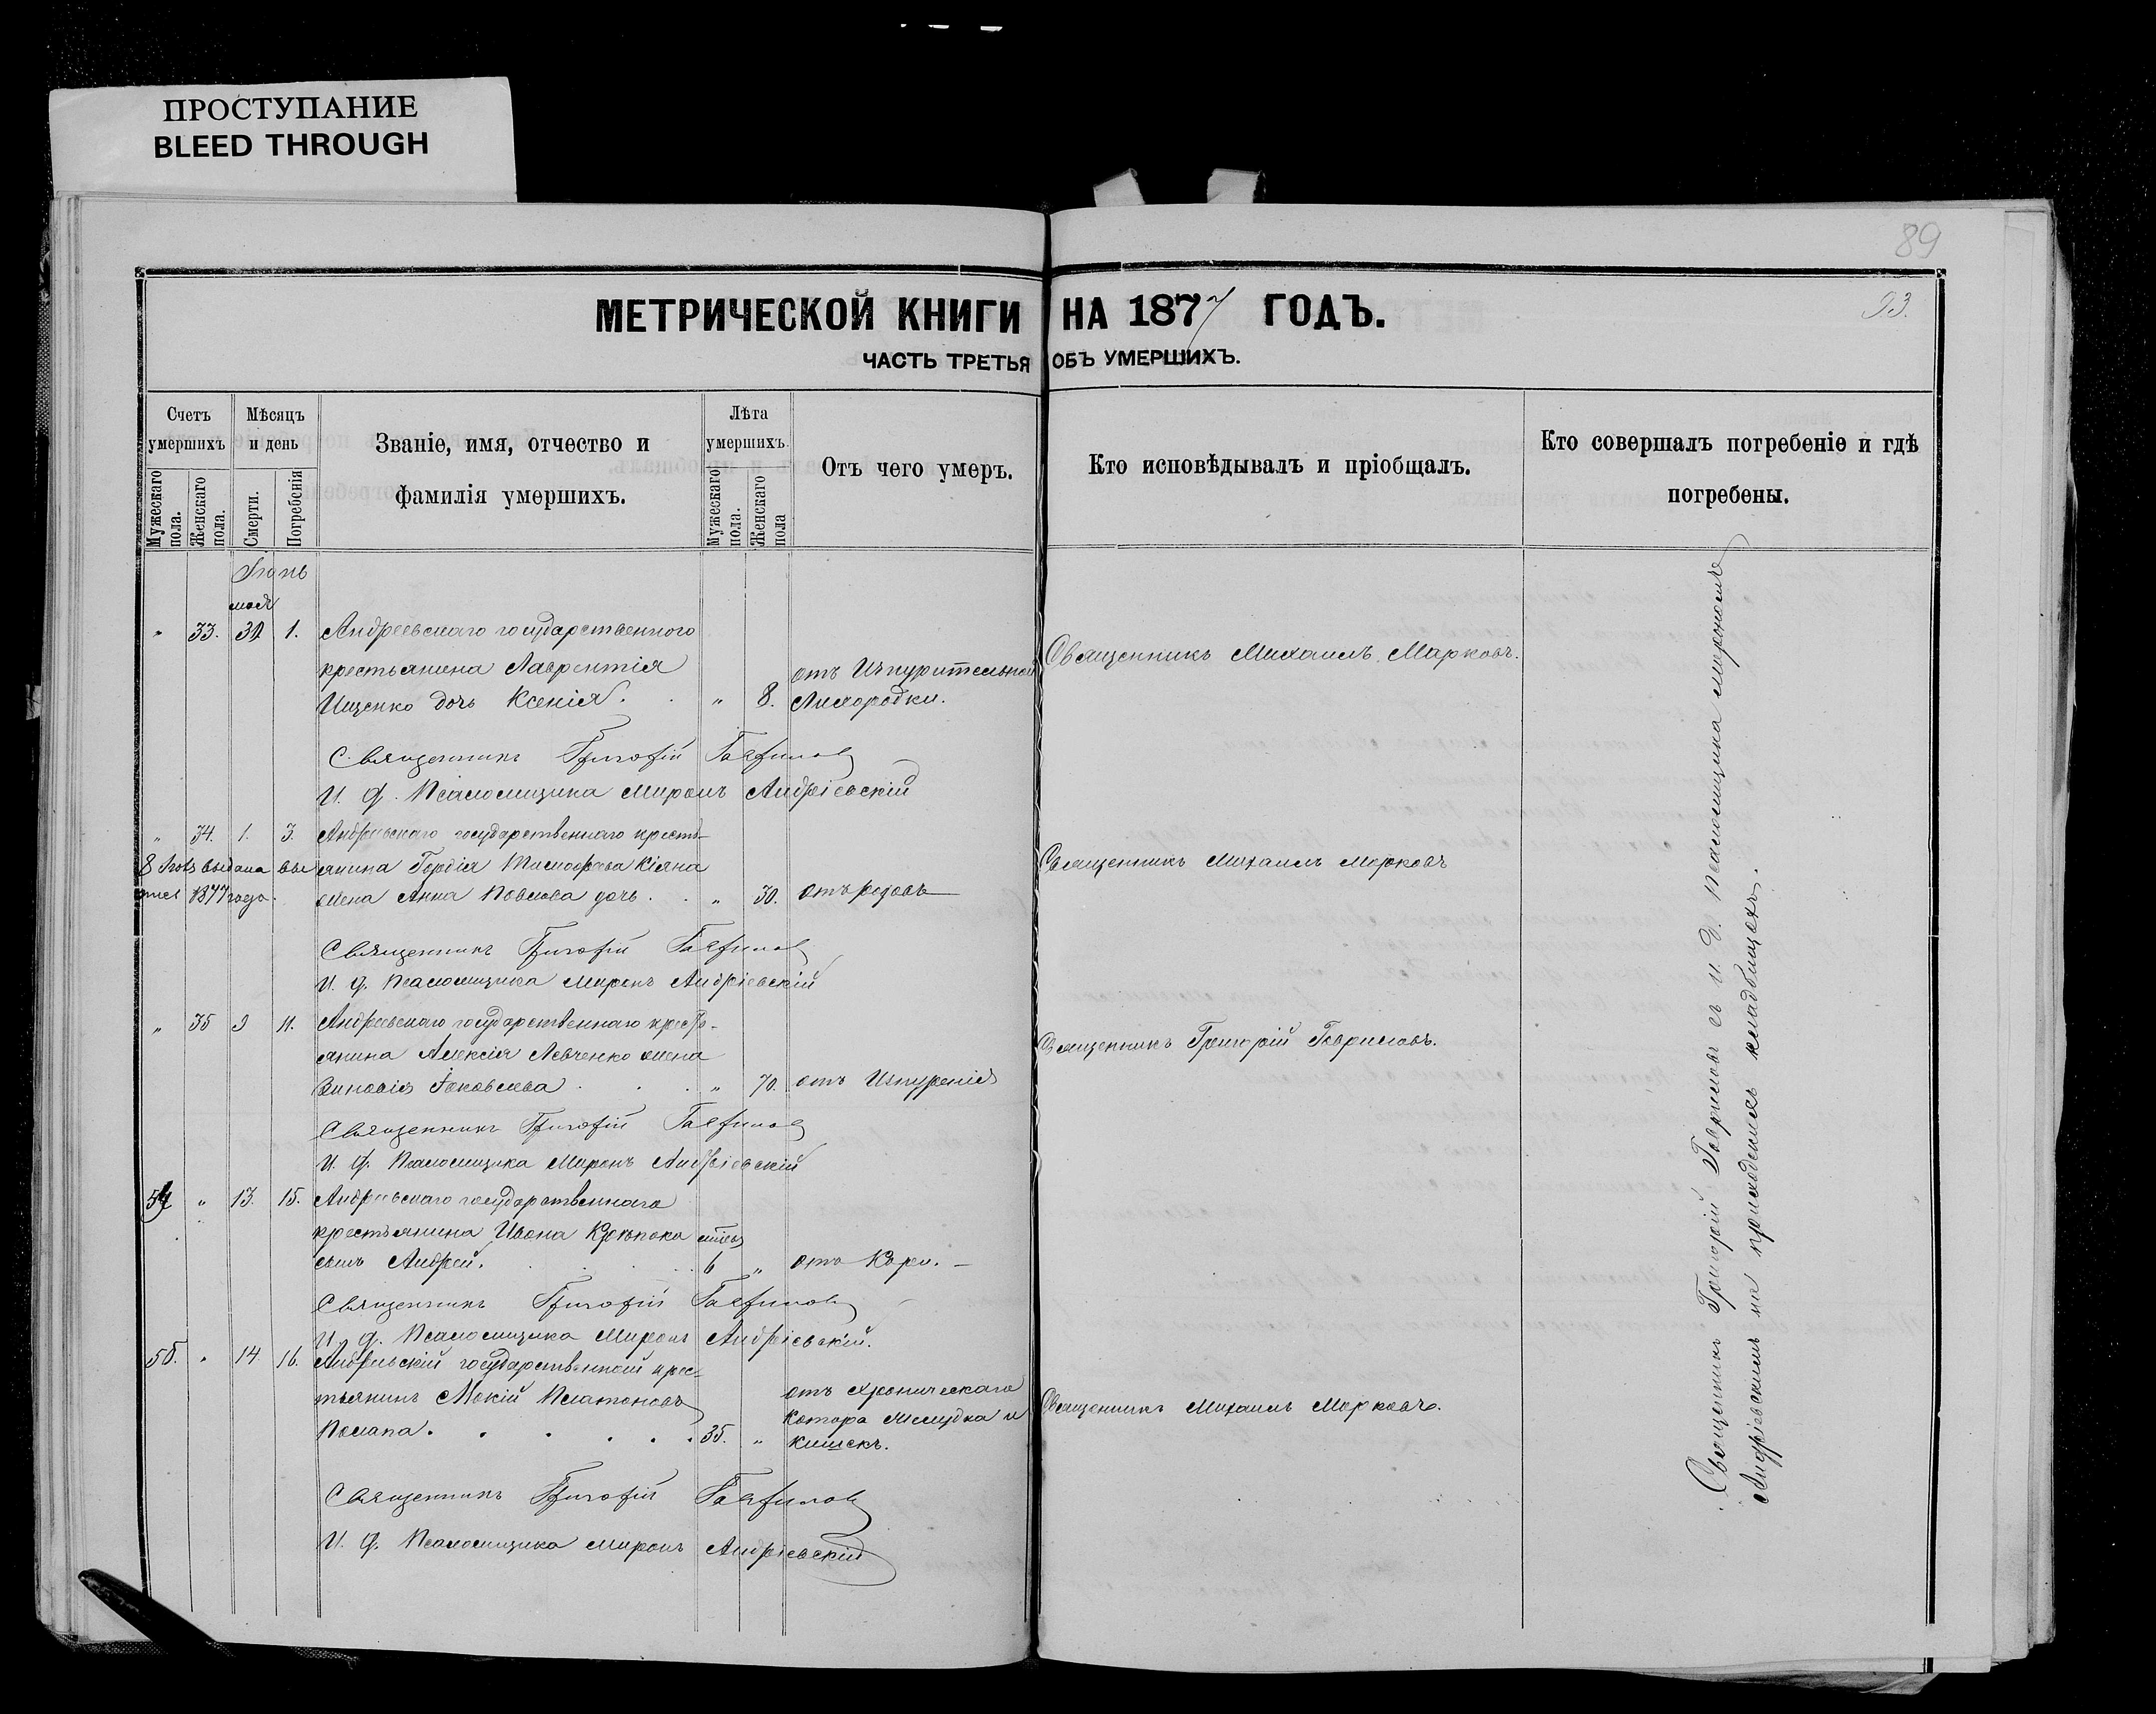 ПРОСТУПАНИЕ
BLEED THROUGH
89
93.
МЕТРИЧЕСКОЙ КНИГИ НА 1877 ГОДЪ.
ЧАСТЬ ТРЕТЬЯ ОБЪ УМЕРШИХЪ.
Счетъ умершихъ
Мужескаго пола.
Женскаго пола.
Мѣсяцъ и день
Смерти.
Погребенія
Званіе, имя, отчество и фамилія умершихъ.
Лѣта умершихъ.
Мужескаго пола.
Женскаго пола
Отъ чего умеръ.
Кто исповѣдывалъ и пріобщалъ.
Кто совершалъ погребеніе и гдѣ погребены.
Іюнь
мая
" 33. 31 1. Андреевскаго государственного
крестьянина Лаврентія отъ Изнурительной Священникъ Михаилъ Марковъ.
Ищенко дочь Ксенія. " 8. Лихорадки.
Священникъ Григорій Гаврилов
И. д. Псаломщика Миронъ Андріевскій
" 34. 1. 3. Андреевскаго государственнаго кресть-
янина Гордія Тимофеева Кіяна Священникъ Михаилъ Марковъ
8 выдана
1877 года.
жена Анна Павлова дочь. " 30. отъ родовъ
Священникъ Григорій Гаврилов
И. д. Псаломщика Миронъ Андріевскій
" 35 9 11. Андреевскаго государственнаго крест-
янина Алексія Левченко жена Священникъ Григорій Гавриловъ.
Зиновія Іаковлева " 70. отъ Изнуренія
Священникъ Григорій Гаврилов
И. д. Псаломщика Миронъ Андріевскій
54 " 13. 15. Андреевскаго государственнаго
крестьянина Ивана
сынъ Андрей. 6 " отъ Кори.
Священникъ Григорій Гаврилов
И. д. Псаломщика Миронъ Андріевскій.
55. " 14 16. Андреевскій государственный крес-
тьянинъ Мокій Платоновъ отъ хроническаго
катара желудка и Священникъ Михаилъ Марковъ.
35. " кишекъ.
Священникъ Григорій Гаврилов
И. д. Псаломщика Миронъ Андріевскій
Священникъ Григорій Гавриловъ съ и. д. Псаломщика Мирономъ
Андріевскимъ на приходскихъ кладбищахъ.